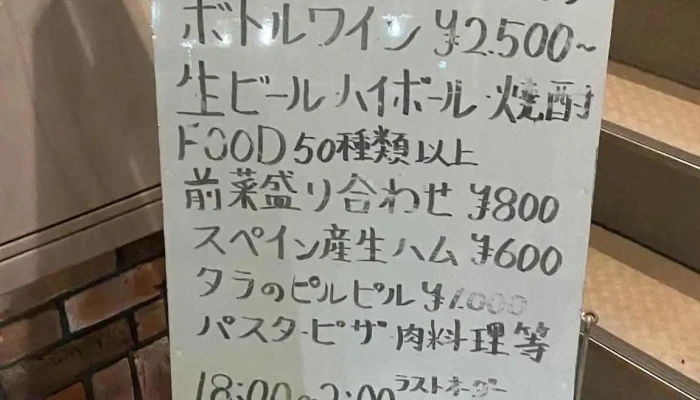 ボトルワイン ¥2.500~
生ビール ハイボール 焼酎
FOOD 50種類以上
前菜盛り合わせ ¥800
スペイン産生ハム ¥600
タラのピルピル ¥1.000
パスタ・ピザ 肉料理 等
18:00~2:00 ラストオーダー